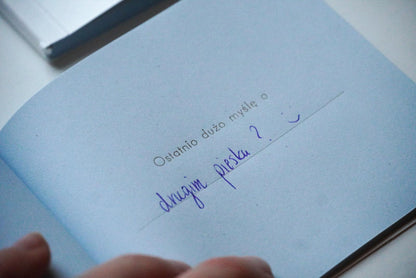 Ostatnio dużo myślę o
drugim piesku? :)